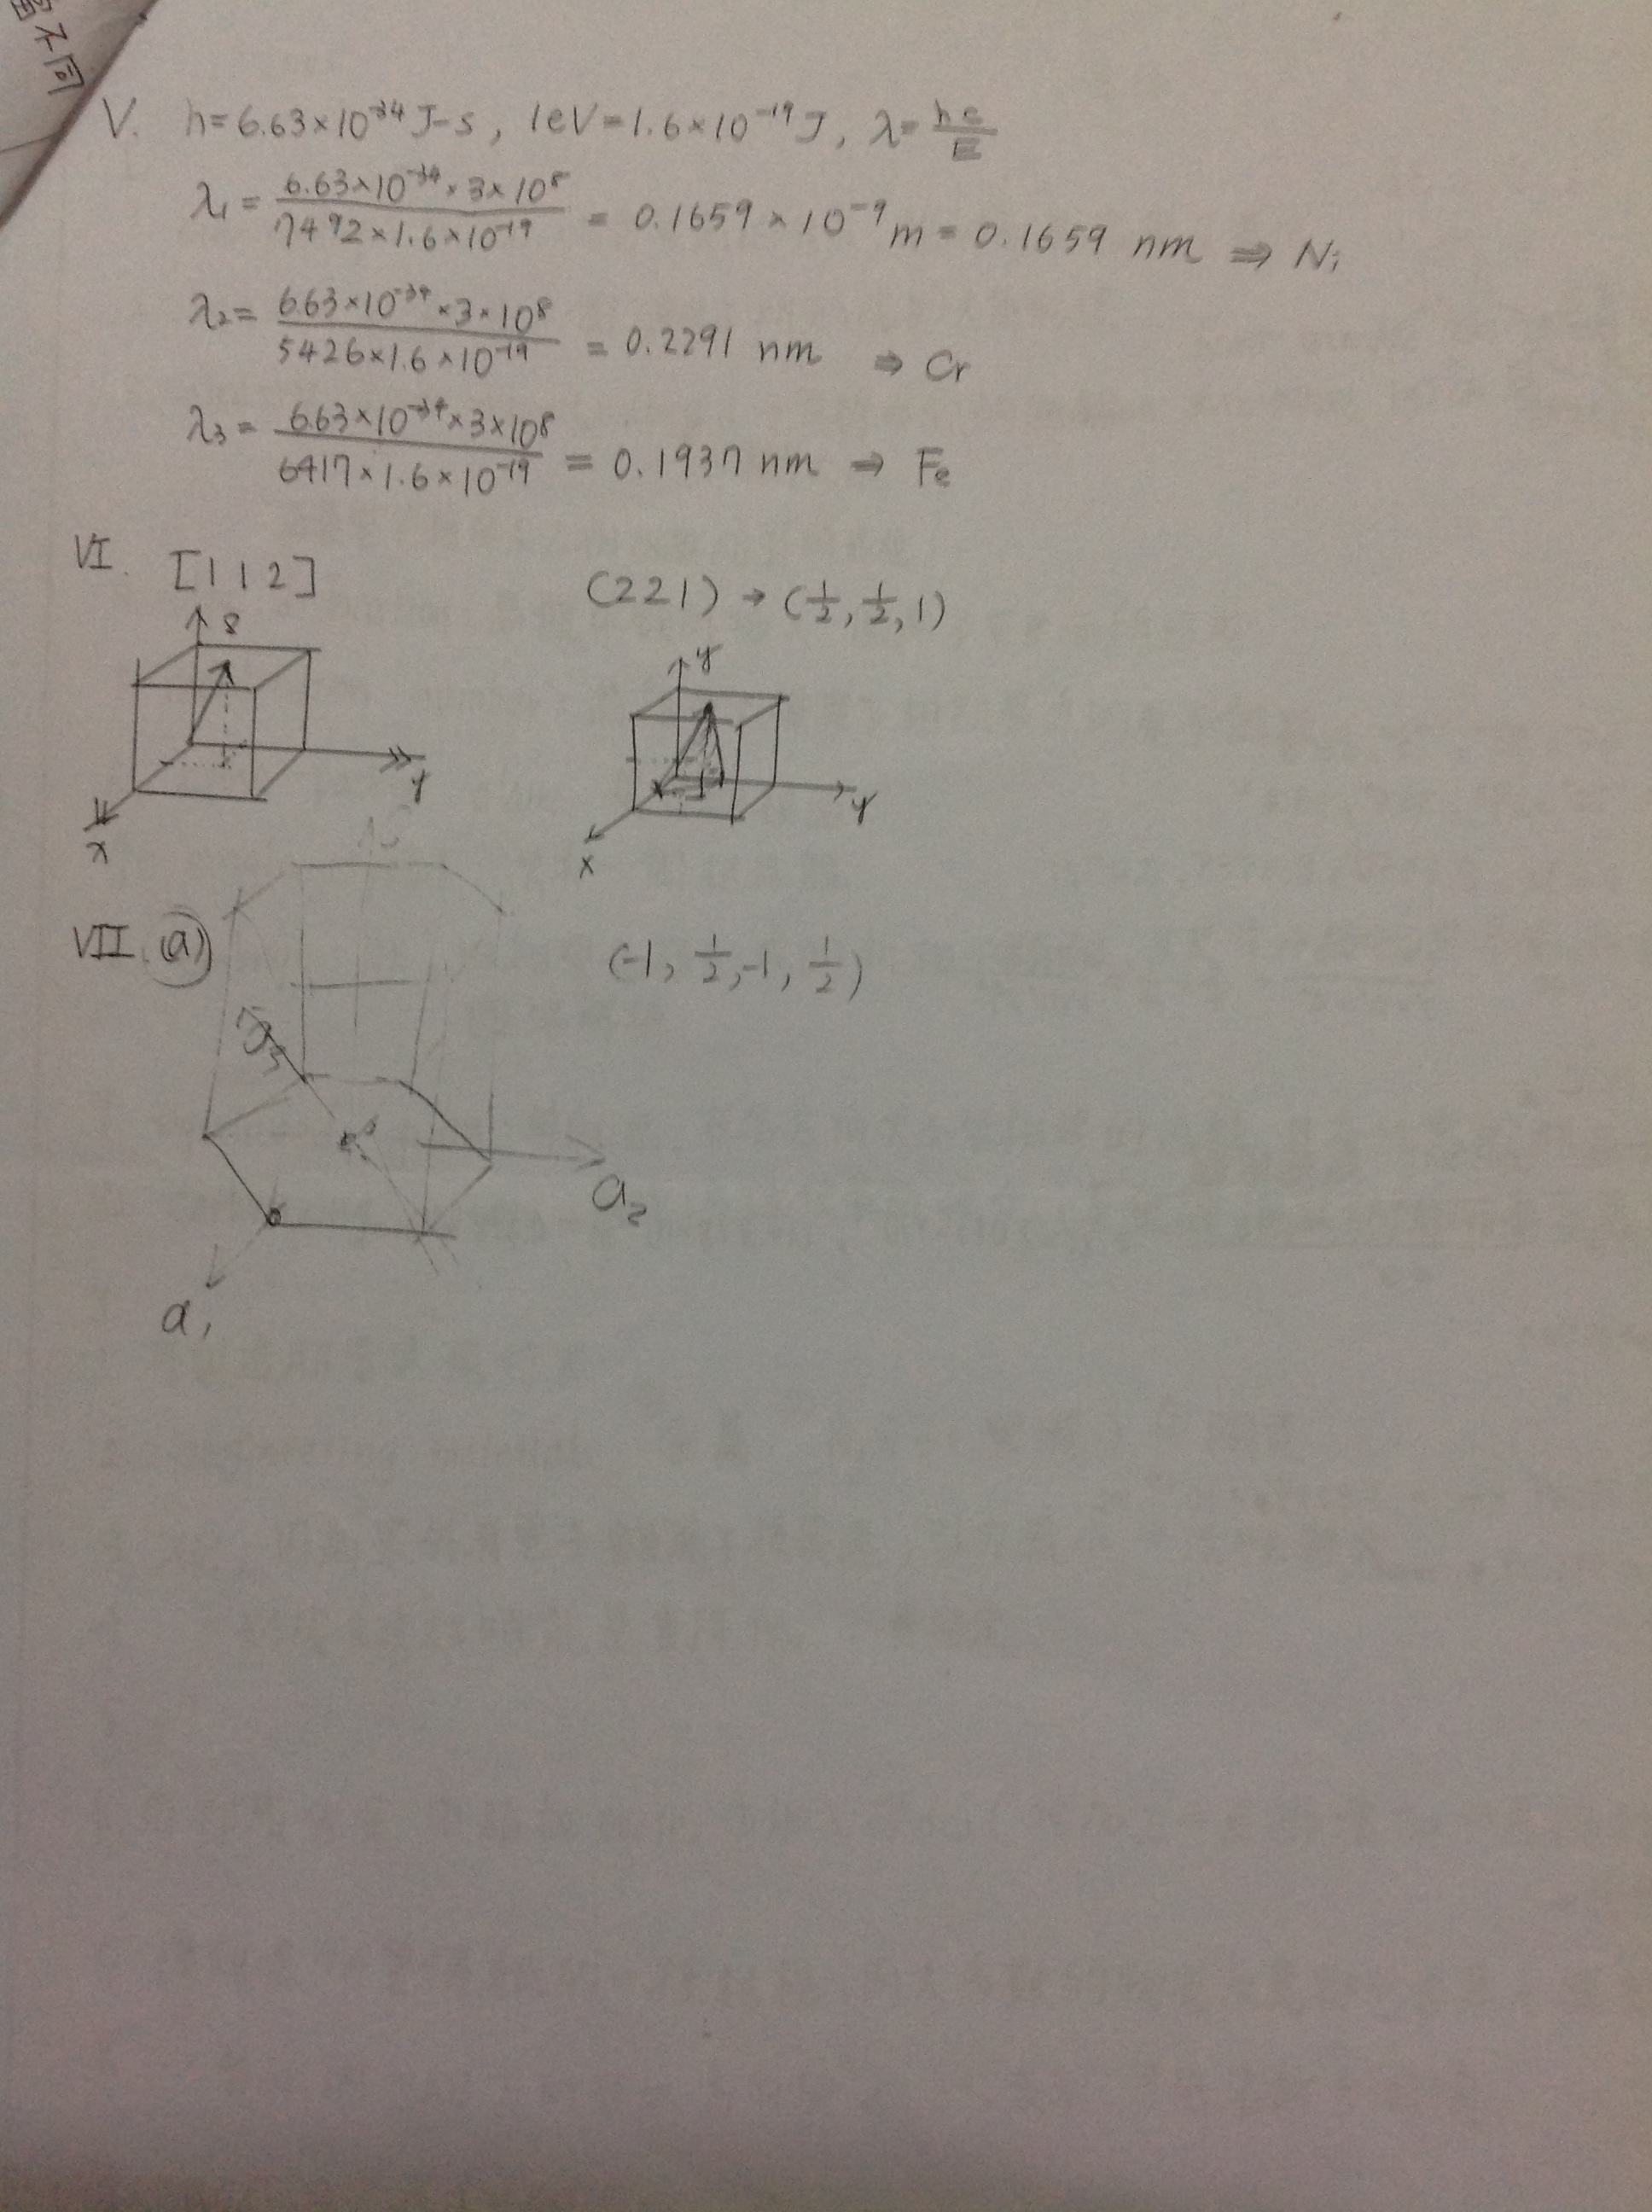 不同
V. h=6.63×10⁻³⁴ J-s, 1eV=1.6×10⁻¹⁹J, λ=hc/E
λ₁ = 6.63×10⁻³⁴×3×10⁸ / 7492×1.6×10⁻¹⁹ = 0.1659×10⁻⁹m = 0.1659 nm ⇒ Ni
λ₂= 6.63×10⁻³⁴×3×10⁸ / 5426×1.6×10⁻¹⁹ = 0.2291 nm ⇒ Cr
λ₃= 6.63×10⁻³⁴×3×10⁸ / 6417×1.6×10⁻¹⁹ = 0.1937 nm ⇒ Fe
VI. [112] (221) → (1/2, 1/2, 1)
y
y
y
x
x
VII. (a) (-1, 1/2, -1, 1/2)
a₃
a₂
a₁